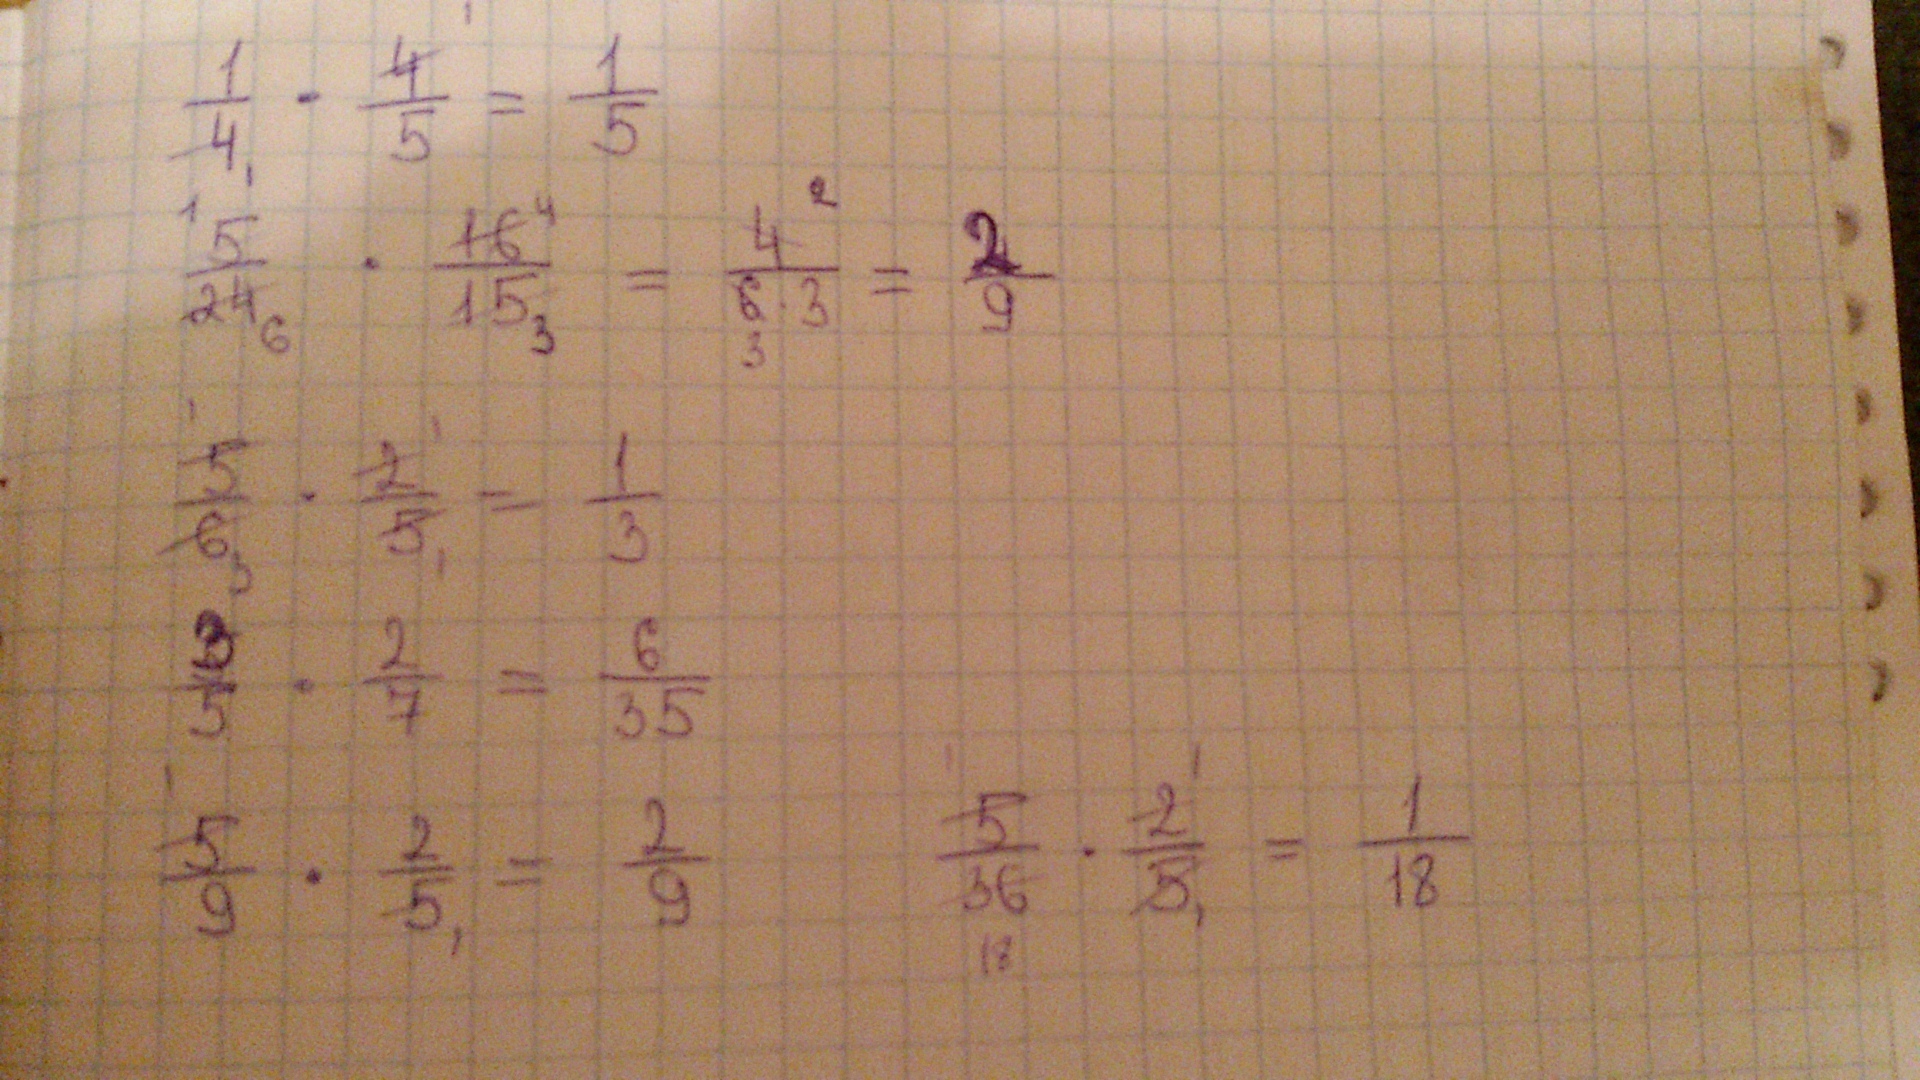 1/4 1 · 4/5 1 = 1/5
1 5/24 6 · 16 4/15 3 = 4 2/6·3 3 = 2/9
1 5/6 3 · 2 1/5 1 = 1/3
3/5 · 2/7 = 6/35
1 5/9 · 2/5 1 = 2/9
1 5/36 18 · 2 1/5 1 = 1/18